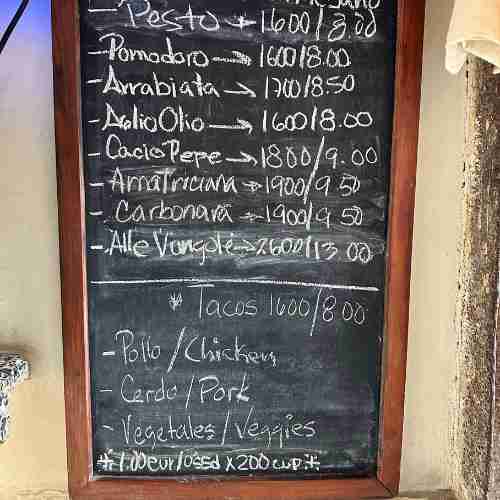 - Pesto → 1600/8.00
- Pomodoro → 1600/8.00
- Arrabiata → 1700/8.50
- Aglio Olio → 1600/8.00
- Cacio Pepe → 1800/9.00
- Amatriciana → 1900/9.50
- Carbonara → 1900/9.50
- Alle Vongole → 2600/13.00
* Tacos 1600/8.00
- Pollo/Chicken
- Cerdo/Pork
- Vegetales/Veggies
*1.00eur/ossd x 200 cup*